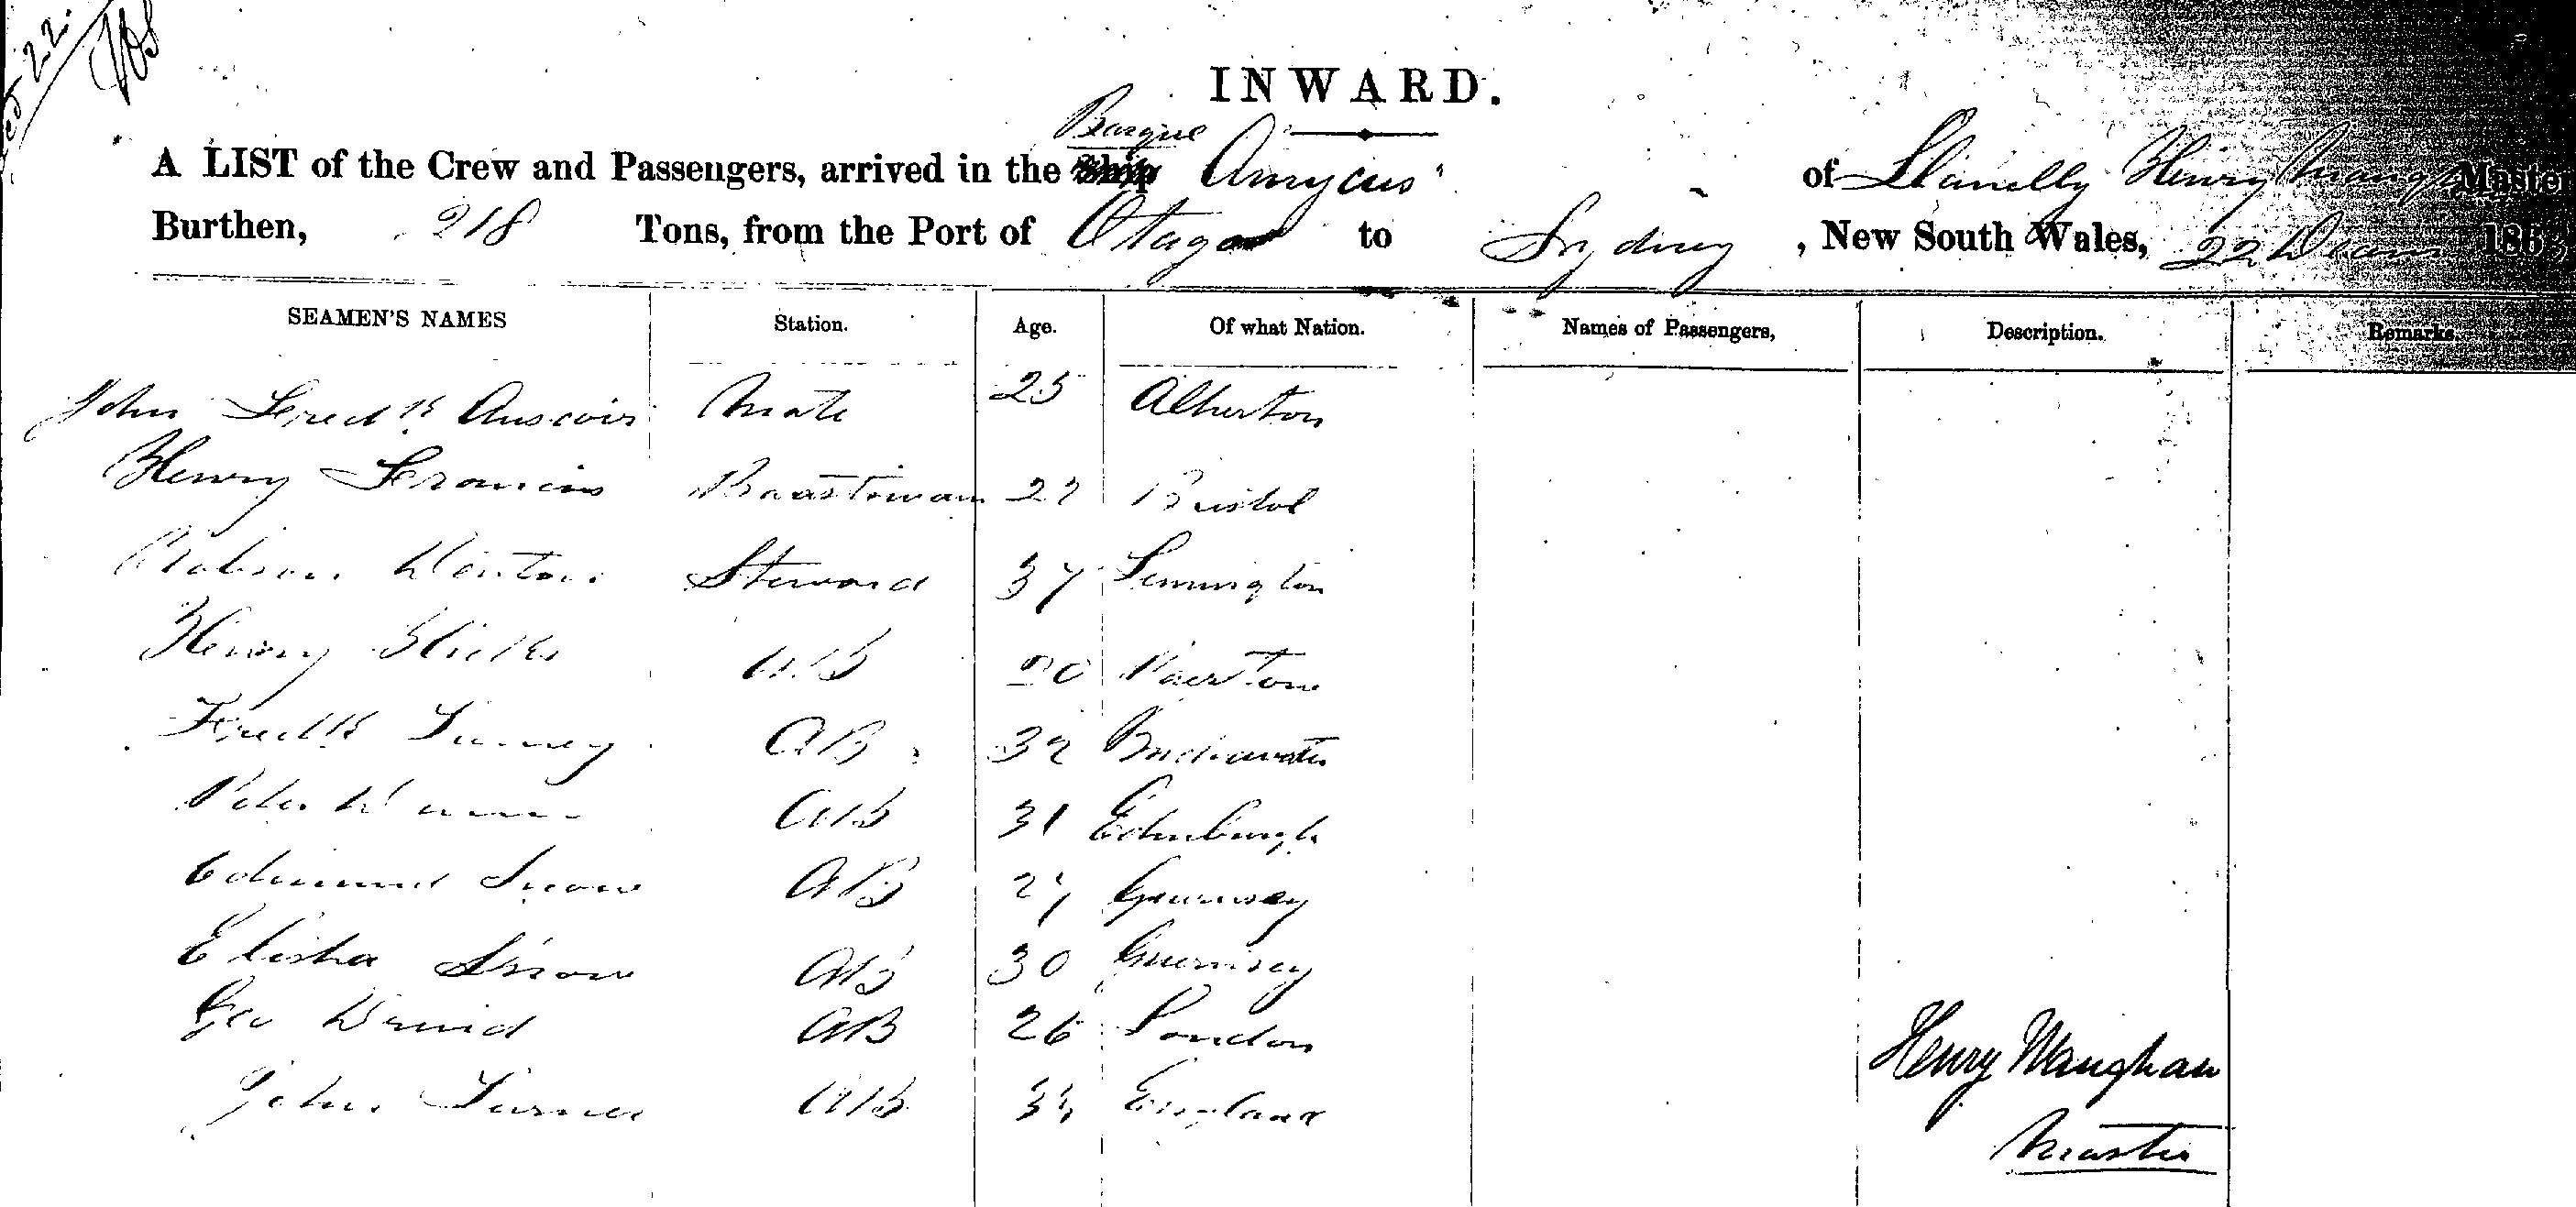 22
INWARD.
Barque
A LIST of the Crew and Passengers, arrived in the Ship Amycus of Llanelly Henry Maughan Master
Burthen, 218 Tons, from the Port of Otago to Sydney, New South Wales, 22 186
SEAMEN'S NAMES Station. Age. Of what Nation. Names of Passengers, Description. Remarks.
John Fredk Mate 25 Alberton
Henry Francis Boatswain 27 Bristol
Steward 37
Henry Hicks AB 20
Fredk AB 32 Bridgwater
Peter AB 31 Edinburgh
Edmund Snow AB 27 Guernsey
Elisha Snow AB 30 Guernsey
Geo David AB 26 London
John Turner AB England
Henry Maughan
Master